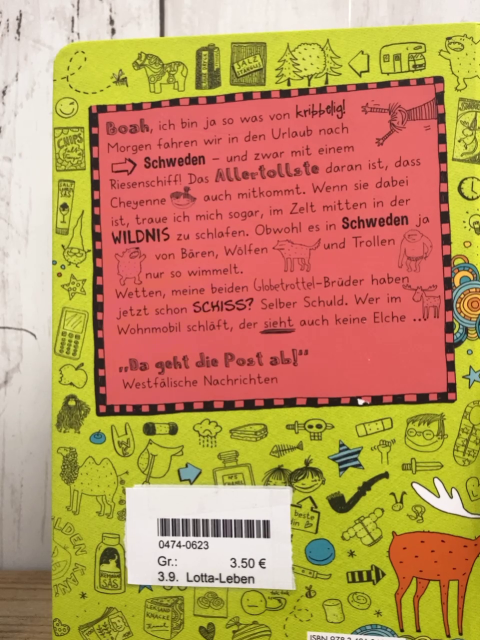 SALZ
STANGEN
CHIPS
Boah, ich bin ja so was von kribbelig!
Morgen fahren wir in den Urlaub nach
Schweden – und zwar mit einem
Riesenschiff! Das Allertollste daran ist, dass
Cheyenne auch mitkommt. Wenn sie dabei
ist, traue ich mich sogar, im Zelt mitten in der
WILDNIS zu schlafen. Obwohl es in Schweden ja
von Bären, Wölfen und Trollen
nur so wimmelt.
Wetten, meine beiden Globetrottel-Brüder haben
jetzt schon SCHISS? Selber Schuld. Wer im
Wohnmobil schläft, der sieht auch keine Elche ...
„Da geht die Post ab!“
Westfälische Nachrichten
beste
0474-0623
Gr.: 3.50 €
3.9. Lotta-Leben